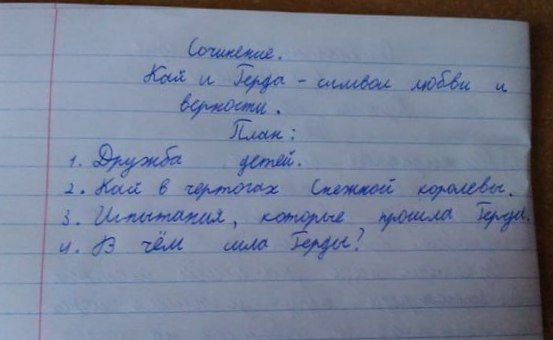 Сочинение.
Кай и Герда – символ любви и
верности.
План:
1. Дружба детей.
2. Кай в чертогах Снежной королевы.
3. Испытания, которые прошла Герда.
4. В чём сила Герды?